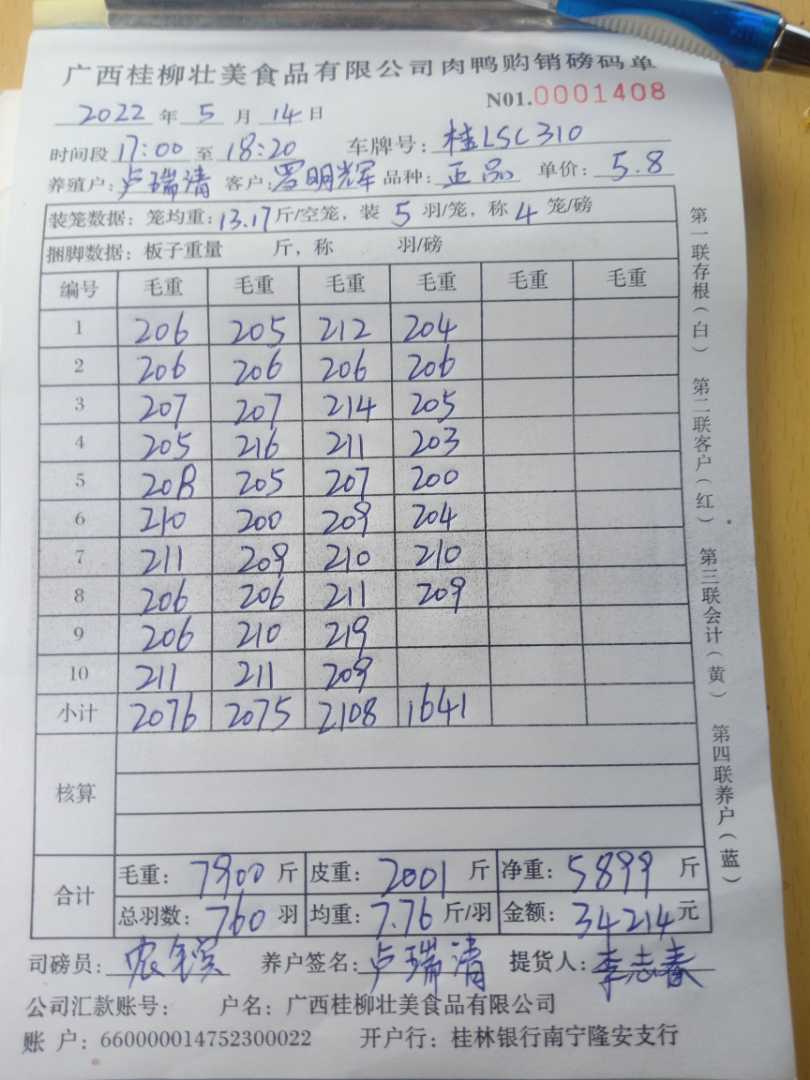 广西桂柳壮美食品有限公司肉鸭购销磅码单
2022 年 5 月 14 日 N01.0001408
时间段 17:00 至 18:20 车牌号: 桂LSC310
养殖户: 卢瑞清 客户: 罗明辉 品种: 正品 单价: 5.8
装笼数据: 笼均重: 13.17 斤/空笼, 装 5 羽/笼, 称 4 笼/磅
捆脚数据: 板子重量 斤, 称 羽/磅
编号 毛重 毛重 毛重 毛重 毛重 毛重
1 206 205 212 204
2 206 206 206 206
3 207 207 214 205
4 205 216 211 203
5 208 205 207 200
6 210 200 209 204
7 211 209 210 210
8 206 206 211 209
9 206 210 219
10 211 211 209
小计 2076 2075 2108 1641
核算
合计 毛重: 7900 斤 皮重: 2001 斤 净重: 5899 斤
总羽数: 760 羽 均重: 7.76 斤/羽 金额: 34214 元
司磅员: 养户签名: 卢瑞清 提货人: 李志春
公司汇款账号: 户名: 广西桂柳壮美食品有限公司
账 户: 660000014752300022 开户行: 桂林银行南宁隆安支行
第一联存根(白) 第二联客户(红) 第三联会计(黄) 第四联养户(蓝)